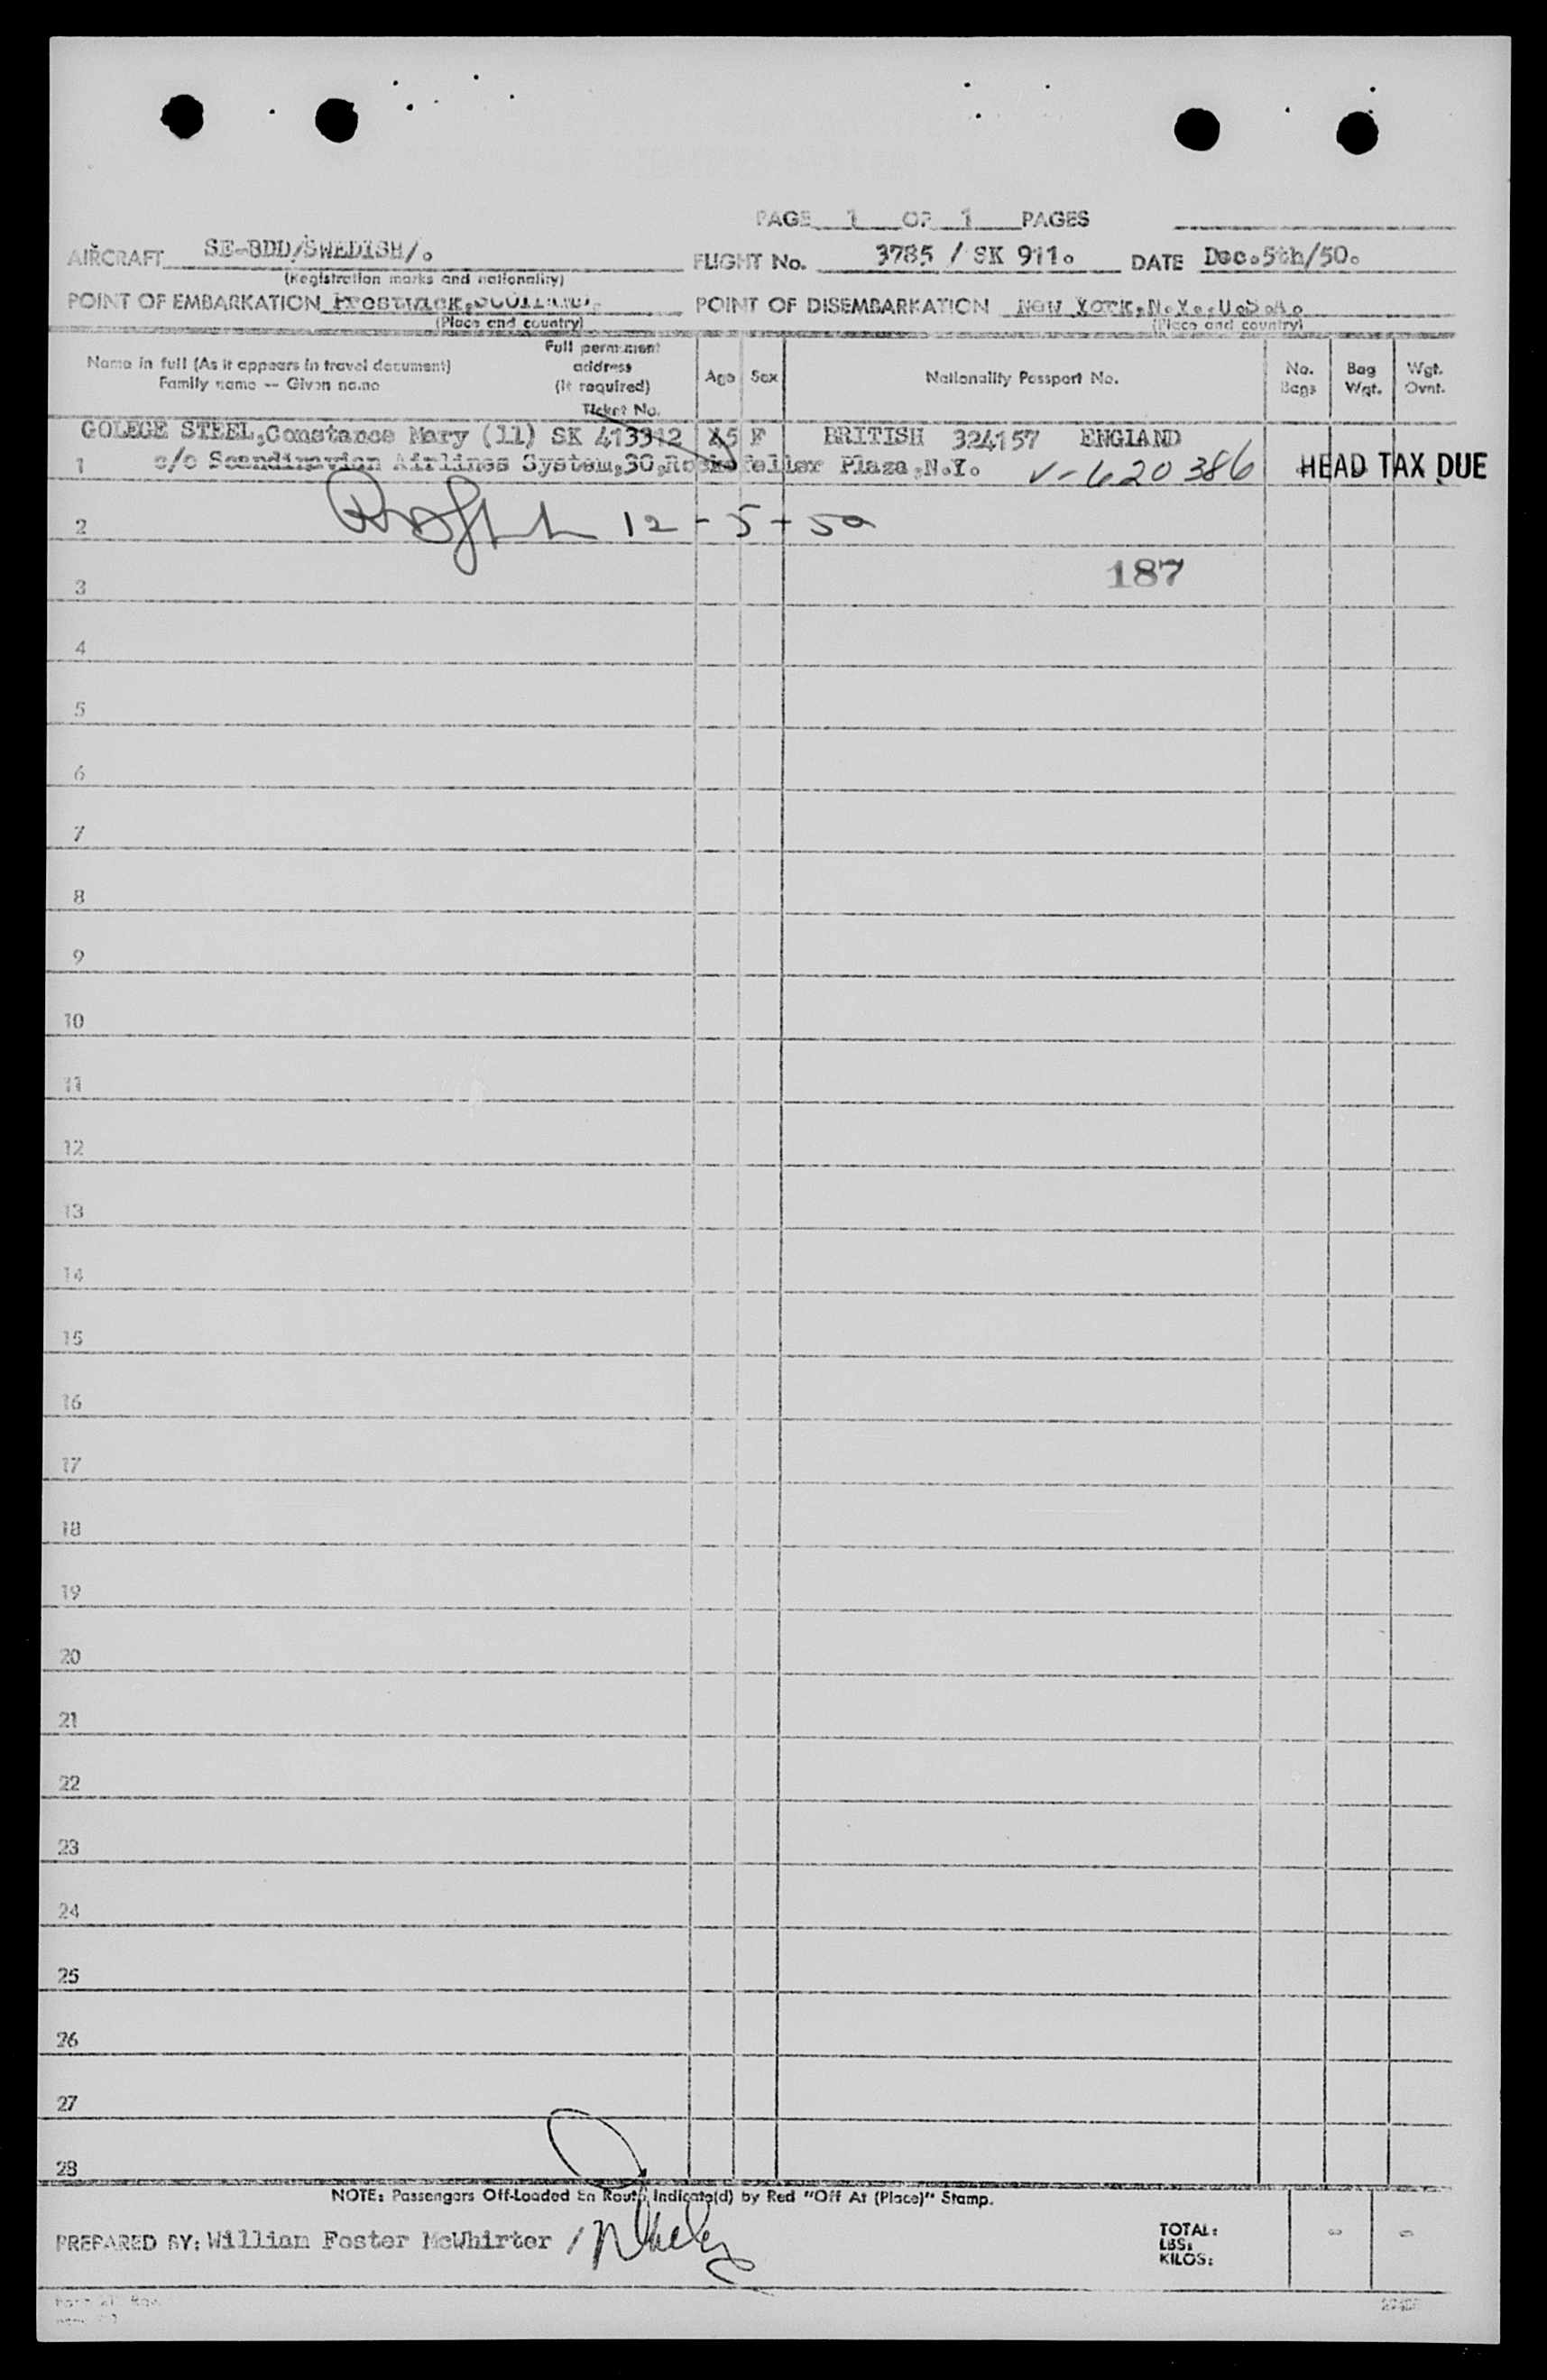 PAGE 1 OF 1 PAGES
AIRCRAFT SE-BDD/SWEDISH/. FLIGHT No. 3785 / SK 911. DATE Dec.5th/50.
(Registration marks and nationality)
POINT OF EMBARKATION Prestwick,SCOTLAND. POINT OF DISEMBARKATION New York,N.Y.,U.S.A.
(Place and country) (Place and country)
Name in full (As it appears in travel document)
Family name -- Given name
Full permanent
address
(if required)
Ticket No.
Age Sex Nationality Passport No. No.
Bags Bag
Wgt. Wgt.
Ovnt.
GOLEGE STEEL,Constance Mary (11) SK 413312 F BRITISH 324157 ENGLAND
1 c/o Scandinavian Airlines System,30,Rockefeller Plaza,N.Y. V-620386 HEAD TAX DUE
2 12-5-50
3 187
4
5
6
7
8
9
10
11
12
13
14
15
16
17
18
19
20
21
22
23
24
25
26
27
28
NOTE: Passengers Off-Loaded En Route Indicate(d) by Red "Off At (Place)" Stamp.
PREPARED BY: William Foster McWhirter /
TOTAL:
LBS:
KILOS: